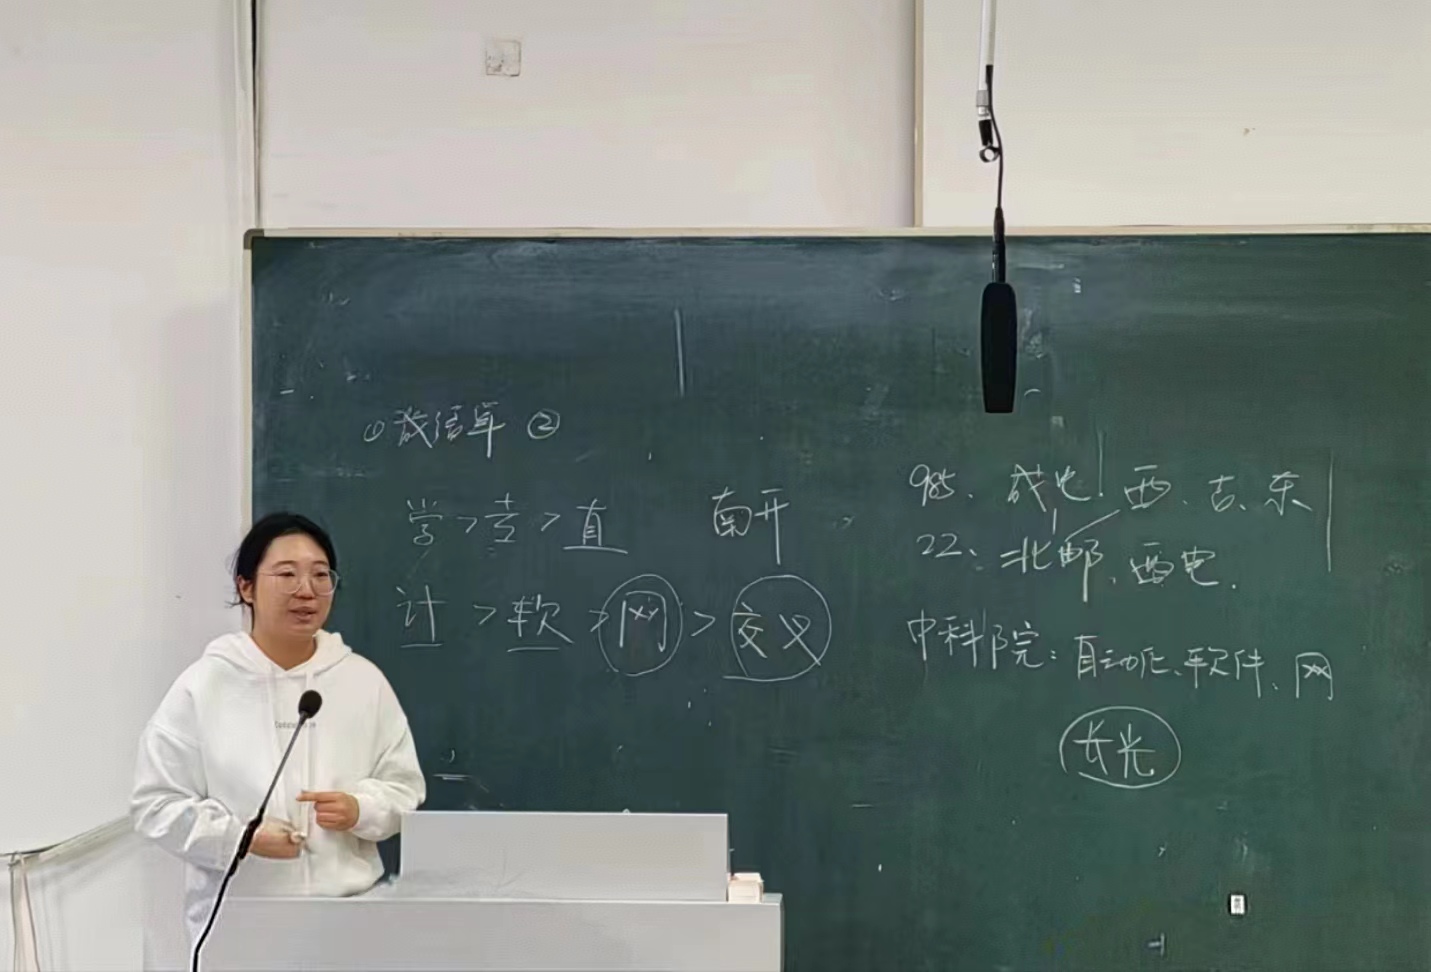 ①成绩单 ②
学>专>直 南开
计>软>网>交叉
985、成电、西、吉、东
22、北邮、西电.
中科院：自动化、软件、网
长光